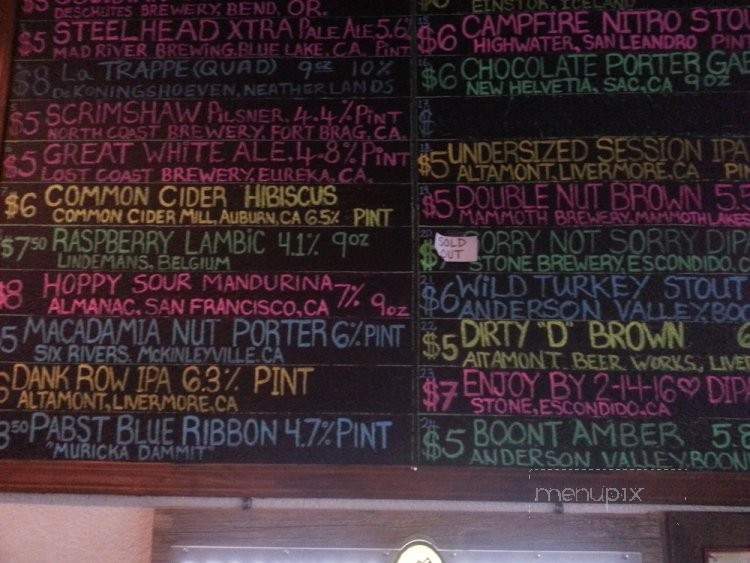 DESCHUTES BREWERY, BEND, OR.
$5 STEELHEAD XTRA PALE ALE 5.6%
MAD RIVER BREWING, BLUE LAKE, CA. PINT
$8 La TRAPPE (QUAD) 9oz 10%
DeKONINGSHOEVEN, NEATHERLANDS
$5 SCRIMSHAW PILSNER. 4.4% PINT
NORTH COAST BREWERY, FORT BRAG, CA.
$5 GREAT WHITE ALE, 4.8% PINT
LOST COAST BREWERY, EUREKA, CA.
$6 COMMON CIDER HIBISCUS
COMMON CIDER MILL, AUBURN, CA 6.5% PINT
$7 50 RASPBERRY LAMBIC 4.1% 9oz
LINDEMANS, BELGIUM
$8 HOPPY SOUR MANDURINA 7% 9oz
ALMANAC, SAN FRANCISCO, CA
5 MACADAMIA NUT PORTER 6% PINT
SIX RIVERS, McKINLEYVILLE, CA
DANK ROW IPA 6.3% PINT
ALTAMONT, LIVERMORE, CA
3 50 PABST BLUE RIBBON 4.7% PINT
"MURICKA DAMMIT"
EINSTOK, ICELAND
$6 CAMPFIRE NITRO STO
HIGHWATER, SAN LEANDRO PINT
$6 CHOCOLATE PORTER GAB
NEW HELVETIA, SAC, CA 9oz
$5 UNDERSIZED SESSION IPA
ALTAMONT, LIVERMORE, CA PIN
$5 DOUBLE NUT BROWN 5.5
MAMMOTH BREWERY, MAMMOTH LAKES
SOLD OUT
SORRY NOT SORRY
STONE BREWERY, ESCONDIDO, C
$6 WILD TURKEY STOUT
ANDERSON VALLEY, BOO
22 $5 DIRTY "D" BROWN 6
ALTAMONT BEER WORKS, LIVE
23 $7 ENJOY BY 2-14-16 ♡ DIPA
STONE, ESCONDIDO, CA
24 $5 BOONT AMBER 5.8
ANDERSON VALLEY, BOON
menupix